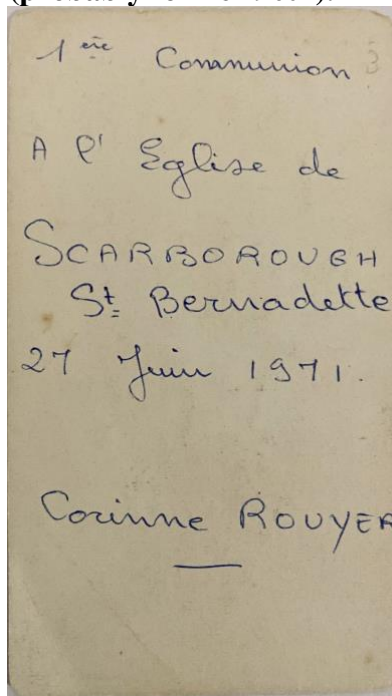 1ère Communion
3
A l' Eglise de
SCARBOROUGH
St Bernadette
27 Juin 1971.
Corinne ROUYER